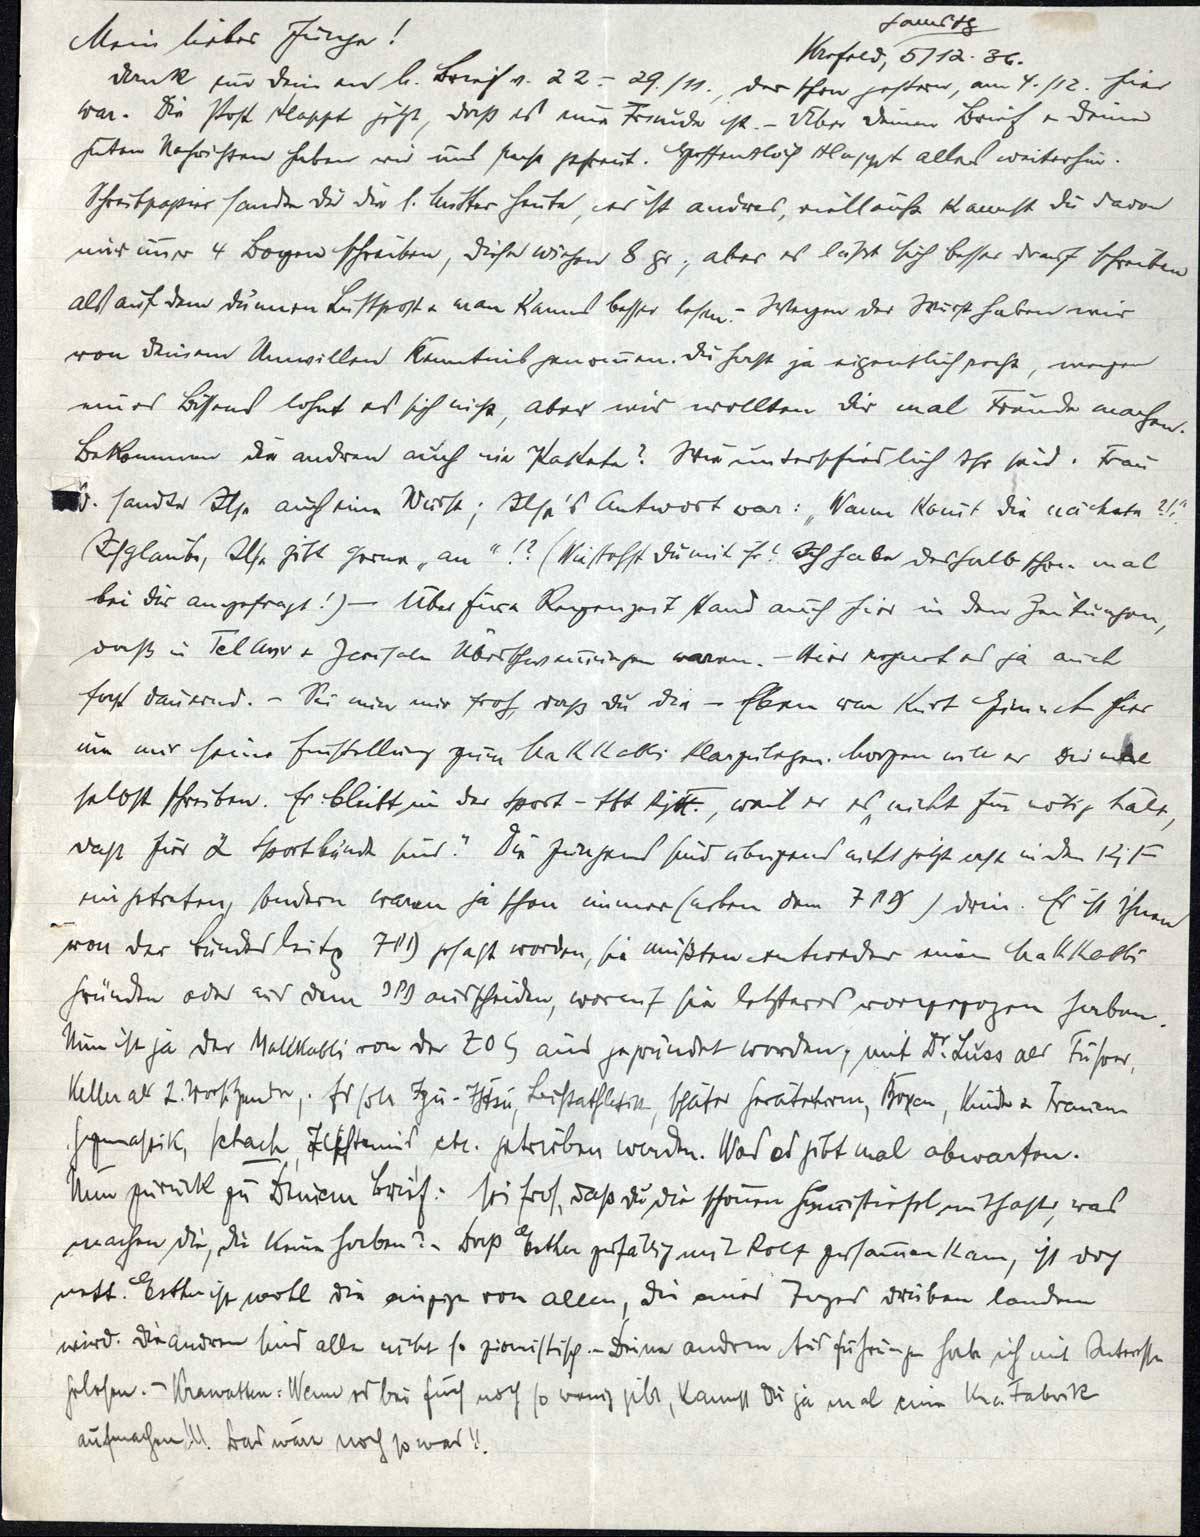 Samstg
Mein lieber Junge!
Krefeld, 5/12.36.
Dank für Deinen l. Brief v. 22.-29./11., der schon gestern, am 4./12. hier
war. Die Post klappt jetzt, daß es eine Freude ist. - Über Deinen Brief & Deine
guten Nachrichten haben wir uns sehr gefreut. Hoffentlich klappt alles weiterhin.
Schreibpapier sandte Dir die l. Mutter heute, es ist andres, vielleicht kannst Du davon
nur immer 4 Bogen schreiben, diese wiegen 8 gr., aber es läßt sich besser drauf schreiben
als auf dem dünnen Luftpost & man kanns besser lesen. - Wegen der Wurst haben wir
von Deinem Unwillen Kenntnis genommen. Du hast ja eigentlich recht, wegen
eines Bissens lohnt es sich nicht, aber wir wollten Dir mal Freude machen.
Bekommen die andren auch nie Pakete? Wie unterschiedlich Ihr seid. Frau
D. sandte Ilse auch eine Wurst; Ilse's Antwort war: „Wann kommt die nächste?!"
Ich glaube, Ilse gibt gerne „an"!? (Wie stehst Du mit ihr? Ich habe deshalb schon mal
bei Dir angefragt!) - Über Eure Regenzeit stand auch hier in den Zeitungen,
daß in Tel Aviv & Jerusalem Überschwemmungen waren. - Hier regnet es ja auch
fast dauernd. - Sei nun nur froh, daß Du die - Eben war Kurt hier
um mir seine Einstellung zum Makkabi klarzulegen. Morgen will er Dir mal
selbst schreiben. Er bleibt in der Sport-Abt RjF., weil er es „nicht für nötig hält,
daß hier 2 Sportbünde sind." Die Jungens sind übrigens nicht jetzt erst in den RjF
eingetreten, sondern waren ja schon immer (neben dem JPD) drin. Es ist ihnen
von der Bundesleitg JPD gesagt worden, sie müßten entweder einen Makkabi
gründen oder aus dem JPD ausscheiden, worauf sie letzteres vorgezogen haben.
Nun ist ja der Makkabi von der ZOG aus gegründet worden, mit Dr. Luss als Führer,
Keller als 2. Vorsitzender. Es soll Jiu-Jitsu, Leichtathletik, später Geräteturn, Boxen, Kinder & Frauen
Gymnastik, Schach, Tischtennis etc. getrieben werden. Was es gibt mal abwarten.
Nun zurück zu Deinem Brief: Sei froh, daß Du die schönen Gummistiefel mithast, was
machen die, die keine haben? - Daß Esther zufällig mit Rolf zusammen kam, ist doch
nett. Esther ist wohl die einzige von allen, die eines Tages drüben landen
wird. Die andren sind alle nicht so zionistisch. - Deine andren Ausführungen habe ich mit Interesse
gelesen. - Krawatten: Wenn es bei Euch noch so wenig gibt, kannst Du ja mal eine Kra.Fabrik
aufmachen!!!. Das wäre noch so was!!.